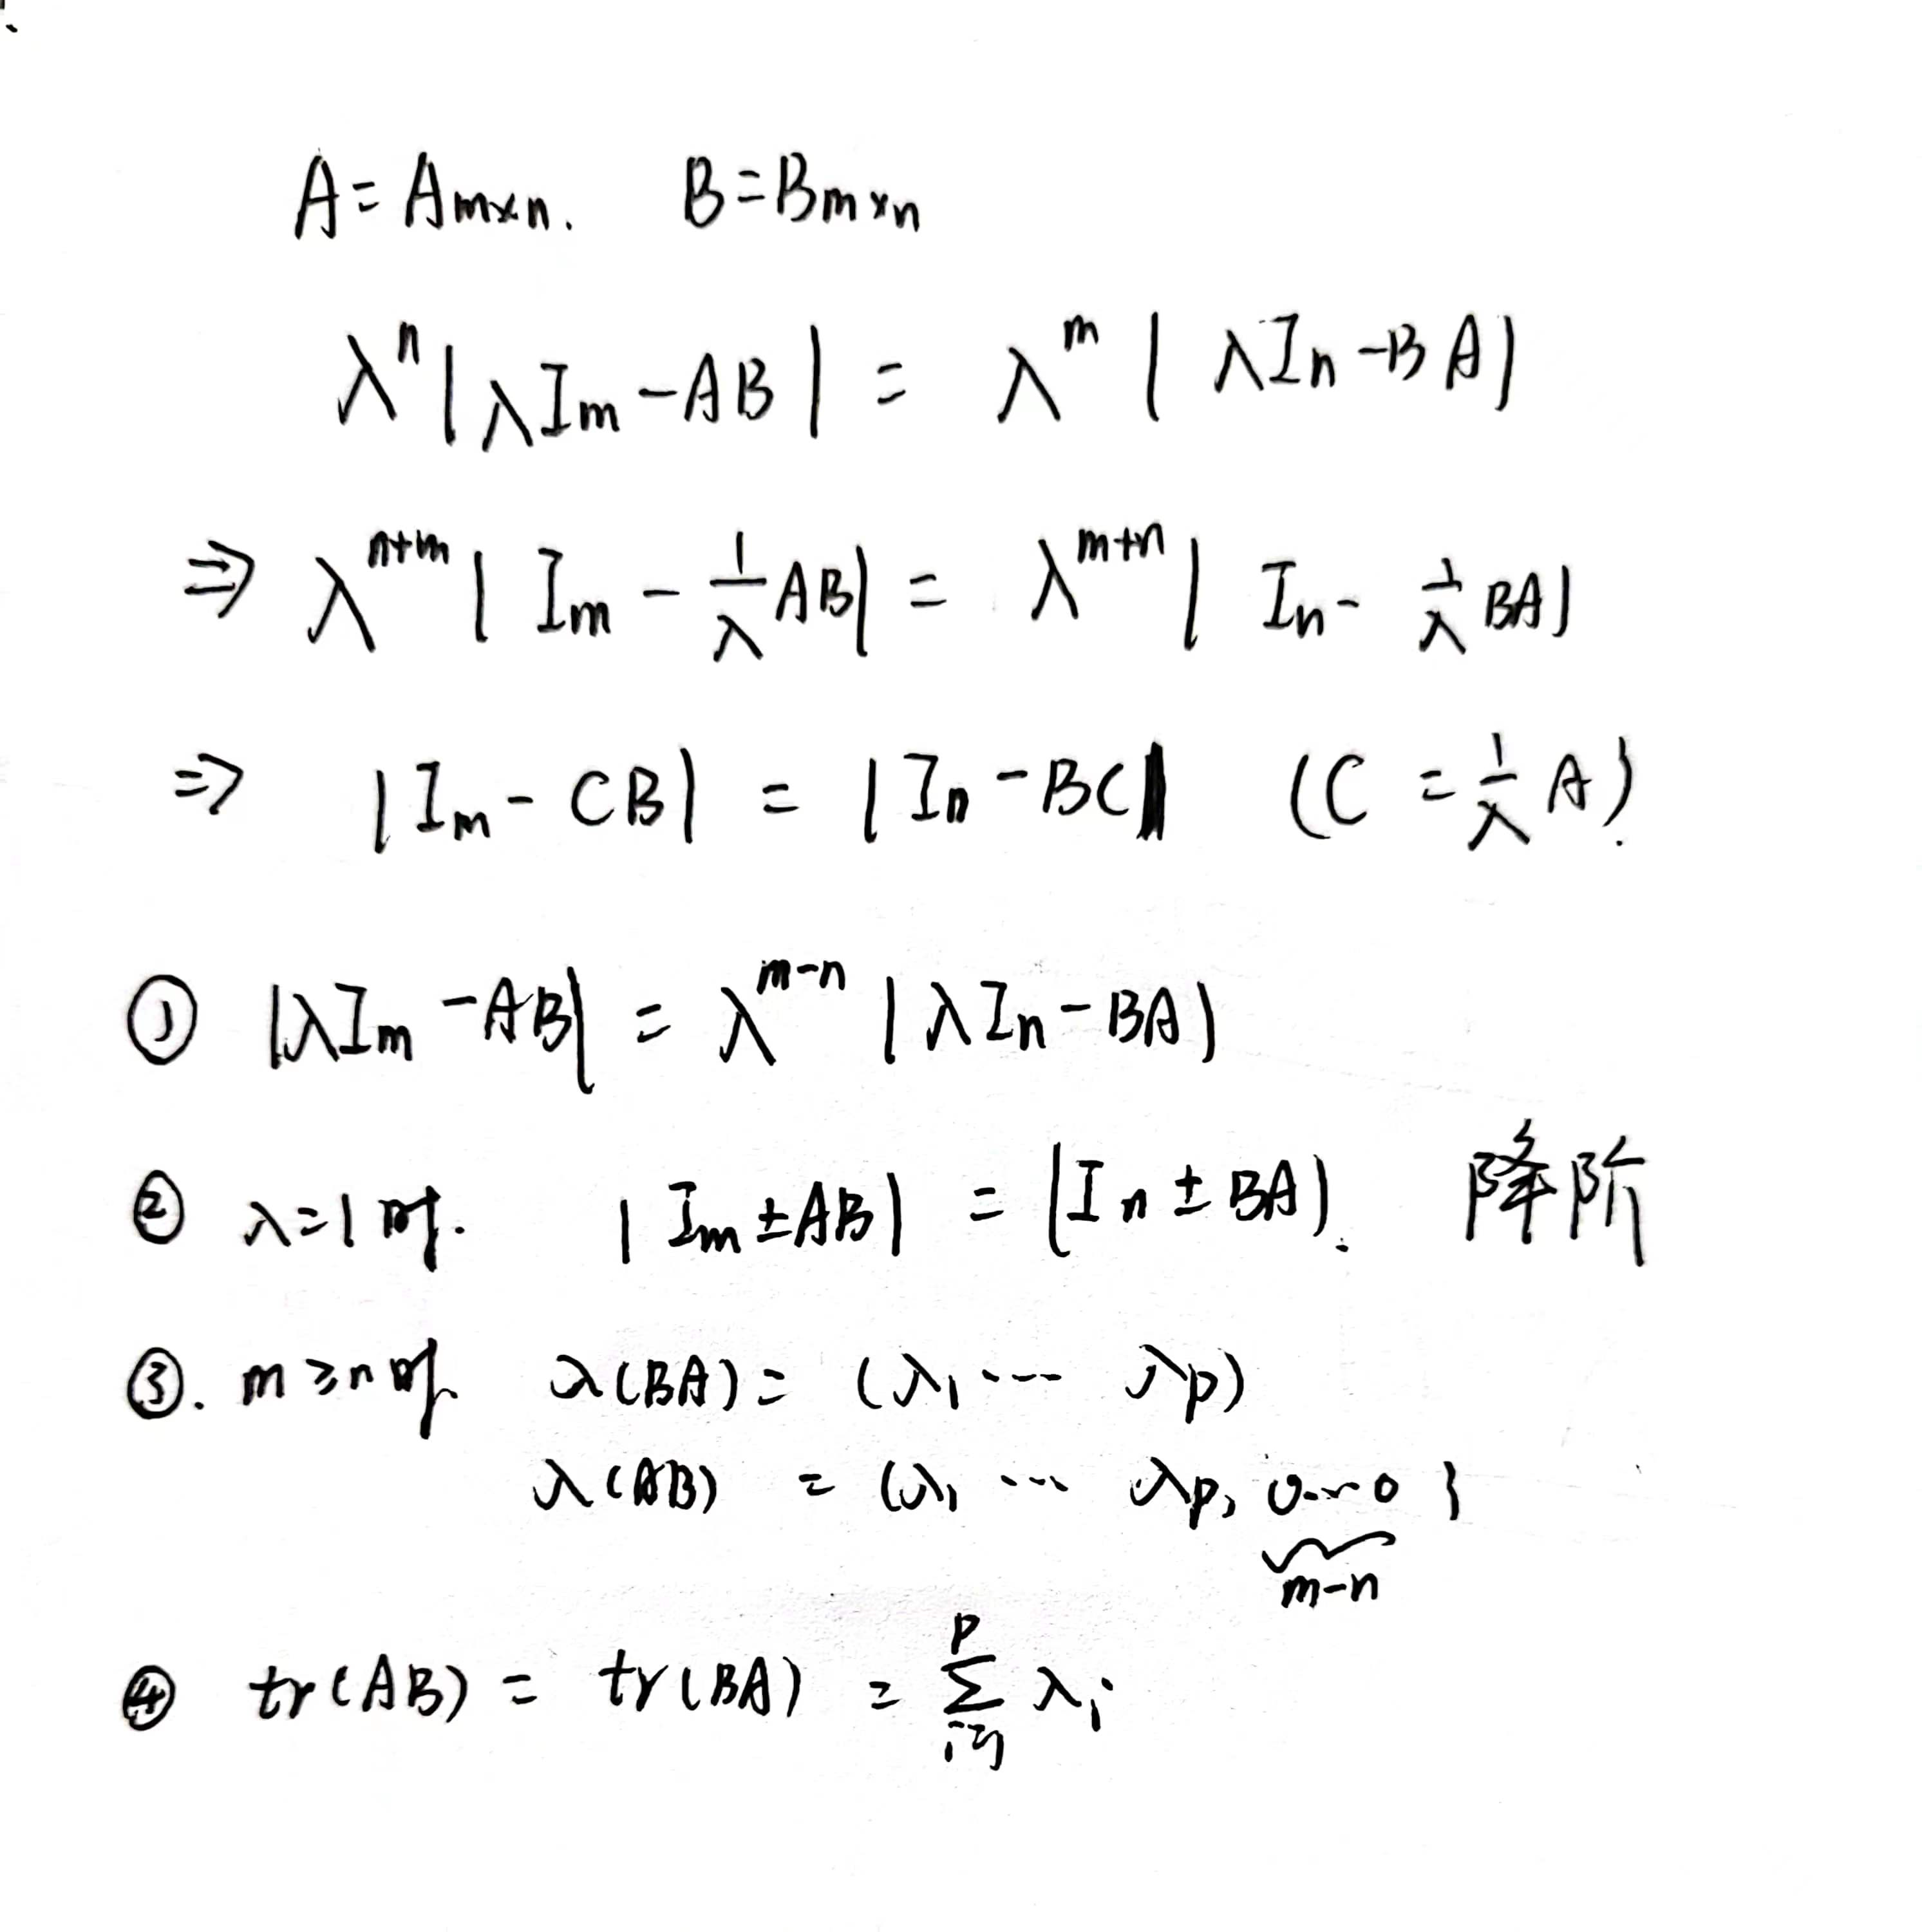 A = Am×n. B = Bm×n
λⁿ |λIm - AB| = λᵐ | λIn - BA|
⇒ λⁿ⁺ᵐ | Im - 1/λ AB| = λᵐ⁺ⁿ | In - 1/λ BA|
⇒ |Im - CB| = |In - BC| (C = 1/λ A).
① |λIm - AB| = λᵐ⁻ⁿ |λIn - BA|
② λ=1时. | Im ± AB| = |In ± BA|. 降阶
③. m≥n时. λ(BA) = (λ1 ··· λp)
λ(AB) = (λ1 ··· λp, 0···0 }
m-n
④ tr(AB) = tr(BA) = Σᵢ₌₁ᵖ λi